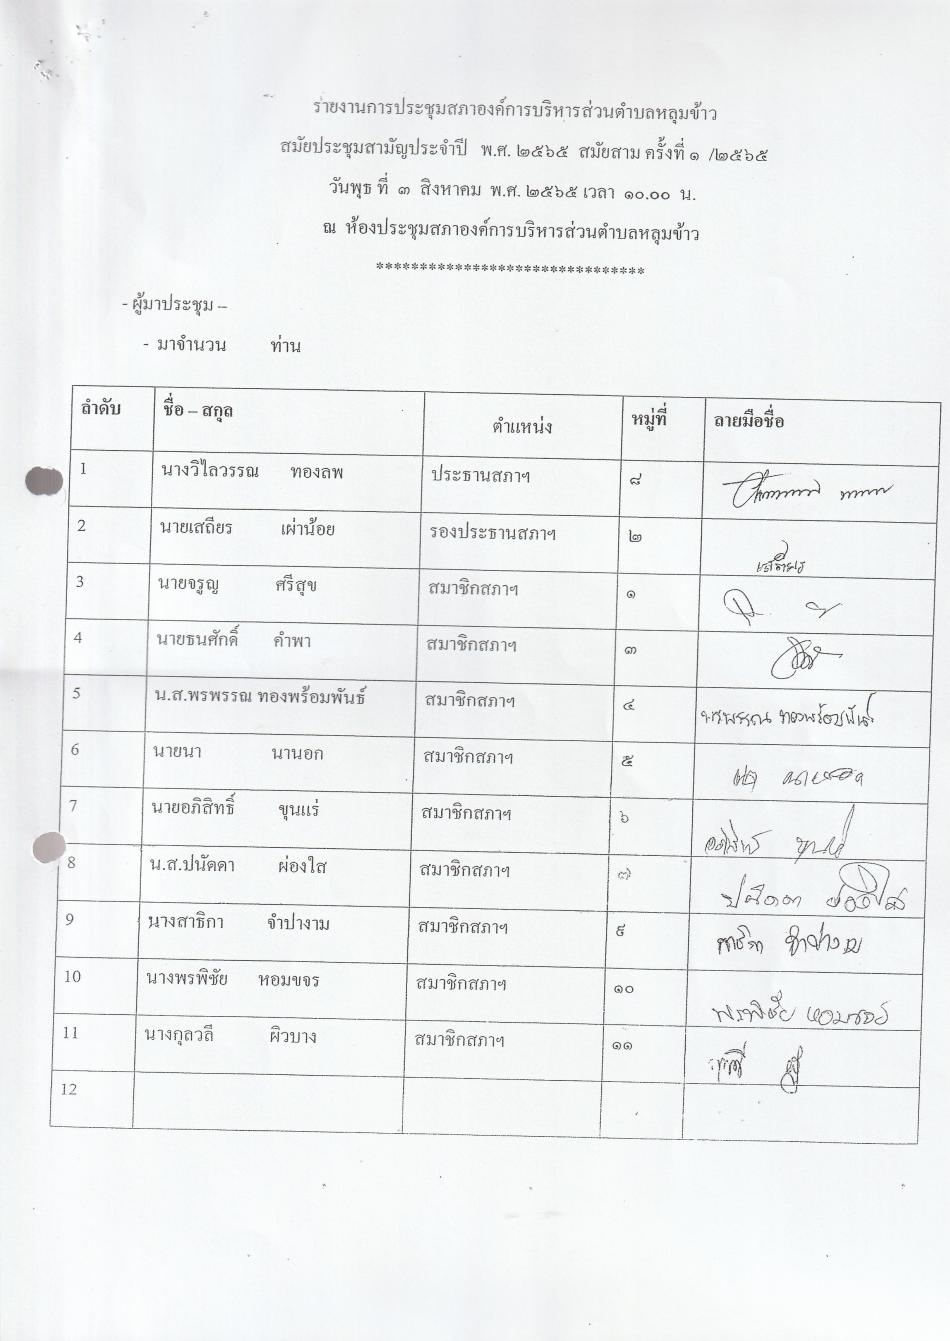 รายงานการประชุมสภาองค์การบริหารส่วนตำบลหลุมข้าว
สมัยประชุมสามัญประจำปี พ.ศ. ๒๕๖๕ สมัยสาม ครั้งที่ ๑ /๒๕๖๕
วันพุธ ที่ ๓ สิงหาคม พ.ศ. ๒๕๖๕ เวลา ๑๐.๐๐ น.
ณ ห้องประชุมสภาองค์การบริหารส่วนตำบลหลุมข้าว
*******************************
- ผู้มาประชุม –
- มาจำนวน ท่าน
ลำดับ ชื่อ – สกุล ตำแหน่ง หมู่ที่ ลายมือชื่อ
1 นางวิไลวรรณ ทองลพ ประธานสภาฯ ๘
2 นายเสถียร เผ่าน้อย รองประธานสภาฯ ๒ เสถียร
3 นายจรูญ ศรีสุข สมาชิกสภาฯ ๑
4 นายธนศักดิ์ คำพา สมาชิกสภาฯ ๓
5 น.ส.พรพรรณ ทองพร้อมพันธ์ สมาชิกสภาฯ ๔ พรพรรณ ทองพร้อมพันธ์
6 นายนา นานอก สมาชิกสภาฯ ๕ นา นานอก
7 นายอภิสิทธิ์ ขุนแร่ สมาชิกสภาฯ ๖
8 น.ส.ปนัดดา ผ่องใส สมาชิกสภาฯ ๗ ปนัดดา ผ่องใส
9 นางสาธิกา จำปางาม สมาชิกสภาฯ ๙ สาธิกา จำปางาม
10 นางพรพิชัย หอมขจร สมาชิกสภาฯ ๑๐ พรพิชัย หอมขจร
11 นางกุลวลี ผิวบาง สมาชิกสภาฯ ๑๑
12